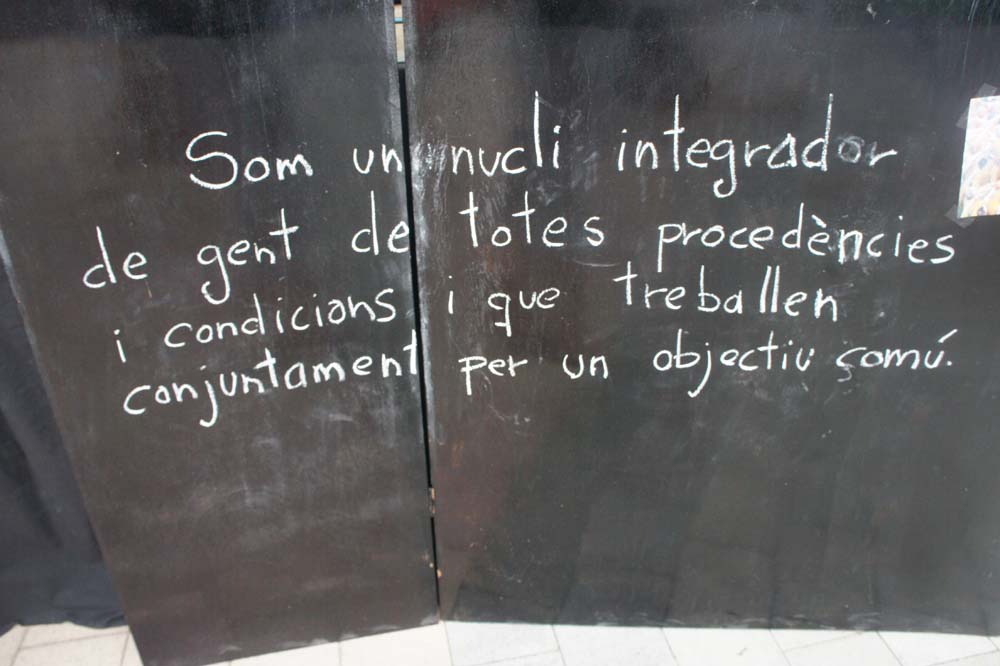 Som un nucli integrador
de gent de totes procedències
i condicions i que treballen
conjuntament per un objectiu çomú.